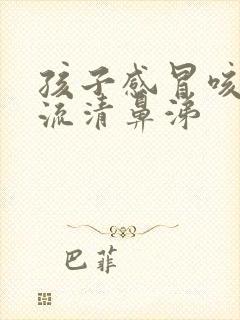 孩子感冒咳
流清鼻涕
巴菲